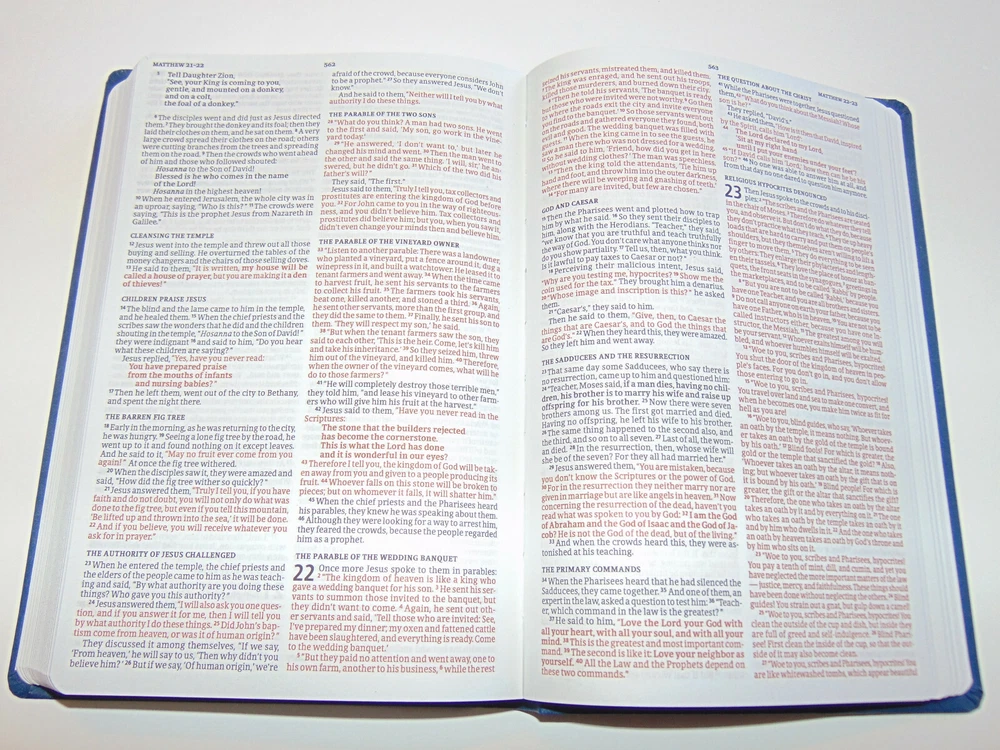 MATTHEW 21–22
562
5 Tell Daughter Zion,
"See, your King is coming to you,
gentle, and mounted on a donkey,
and on a colt,
the foal of a donkey."
6 The disciples went and did just as Jesus directed
them. 7 They brought the donkey and its foal; then they
laid their clothes on them, and he sat on them. 8 A very
large crowd spread their clothes on the road; others
were cutting branches from the trees and spreading
them on the road. 9 Then the crowds who went ahead
of him and those who followed shouted:
Hosanna to the Son of David!
Blessed is he who comes in the name
of the Lord!
Hosanna in the highest heaven!
10 When he entered Jerusalem, the whole city was in
an uproar, saying, "Who is this?" 11 The crowds were
saying, "This is the prophet Jesus from Nazareth in
Galilee."
CLEANSING THE TEMPLE
12 Jesus went into the temple and threw out all those
buying and selling. He overturned the tables of the
money changers and the chairs of those selling doves.
13 He said to them, "It is written, my house will be
called a house of prayer, but you are making it a den
of thieves!"
CHILDREN PRAISE JESUS
14 The blind and the lame came to him in the temple,
and he healed them. 15 When the chief priests and the
scribes saw the wonders that he did and the children
shouting in the temple, "Hosanna to the Son of David!"
they were indignant 16 and said to him, "Do you hear
what these children are saying?"
Jesus replied, "Yes, have you never read:
You have prepared praise
from the mouths of infants
and nursing babies?"
17 Then he left them, went out of the city to Bethany,
and spent the night there.
THE BARREN FIG TREE
18 Early in the morning, as he was returning to the city,
he was hungry. 19 Seeing a lone fig tree by the road, he
went up to it and found nothing on it except leaves.
And he said to it, "May no fruit ever come from you
again!" At once the fig tree withered.
20 When the disciples saw it, they were amazed and
said, "How did the fig tree wither so quickly?"
21 Jesus answered them, "Truly I tell you, if you have
faith and do not doubt, you will not only do what was
done to the fig tree, but even if you tell this mountain,
'Be lifted up and thrown into the sea,' it will be done.
22 And if you believe, you will receive whatever you
ask for in prayer."
THE AUTHORITY OF JESUS CHALLENGED
23 When he entered the temple, the chief priests and
the elders of the people came to him as he was teach-
ing and said, "By what authority are you doing these
things? Who gave you this authority?"
24 Jesus answered them, "I will also ask you one ques-
tion, and if you answer it for me, then I will tell you
by what authority I do these things. 25 Did John's bap-
tism come from heaven, or was it of human origin?"
They discussed it among themselves, "If we say,
'From heaven,' he will say to us, 'Then why didn't you
believe him?' 26 But if we say, 'Of human origin,' we're
afraid of the crowd, because everyone considers John
to be a prophet." 27 So they answered Jesus, "We don't
know."
And he said to them, "Neither will I tell you by what
authority I do these things.
THE PARABLE OF THE TWO SONS
28 "What do you think? A man had two sons. He went
to the first and said, 'My son, go work in the vine-
yard today.'
29 "He answered, 'I don't want to,' but later he
changed his mind and went. 30 Then the man went to
the other and said the same thing. 'I will, sir,' he an-
swered, but he didn't go. 31 Which of the two did his
father's will?"
They said, "The first."
Jesus said to them, "Truly I tell you, tax collectors and
prostitutes are entering the kingdom of God before
you. 32 For John came to you in the way of righteous-
ness, and you didn't believe him. Tax collectors and
prostitutes did believe him; but you, when you saw it,
didn't even change your minds then and believe him.
THE PARABLE OF THE VINEYARD OWNER
33 "Listen to another parable: There was a landowner,
who planted a vineyard, put a fence around it, dug a
winepress in it, and built a watchtower. He leased it to
tenant farmers and went away. 34 When the time came
to harvest fruit, he sent his servants to the farmers
to collect his fruit. 35 The farmers took his servants,
beat one, killed another, and stoned a third. 36 Again,
he sent other servants, more than the first group, and
they did the same to them. 37 Finally, he sent his son to
them. 'They will respect my son,' he said.
38 "But when the tenant farmers saw the son, they
said to each other, 'This is the heir. Come, let's kill him
and take his inheritance.' 39 So they seized him, threw
him out of the vineyard, and killed him. 40 Therefore,
when the owner of the vineyard comes, what will he
do to those farmers?"
41 "He will completely destroy those terrible men,"
they told him, "and lease his vineyard to other farm-
ers who will give him his fruit at the harvest."
42 Jesus said to them, "Have you never read in the
Scriptures:
The stone that the builders rejected
has become the cornerstone.
This is what the Lord has done
and it is wonderful in our eyes?
43 Therefore I tell you, the kingdom of God will be tak-
en away from you and given to a people producing its
fruit. 44 Whoever falls on this stone will be broken to
pieces; but on whomever it falls, it will shatter him."
45 When the chief priests and the Pharisees heard
his parables, they knew he was speaking about them.
46 Although they were looking for a way to arrest him,
they feared the crowds, because the people regarded
him as a prophet.
THE PARABLE OF THE WEDDING BANQUET
22 Once more Jesus spoke to them in parables:
2 "The kingdom of heaven is like a king who
gave a wedding banquet for his son. 3 He sent his ser-
vants to summon those invited to the banquet, but
they didn't want to come. 4 Again, he sent out oth-
er servants and said, 'Tell those who are invited: See,
I've prepared my dinner; my oxen and fattened cattle
have been slaughtered, and everything is ready. Come
to the wedding banquet.'
5 "But they paid no attention and went away, one to
his own farm, another to his business, 6 while the rest
563
MATTHEW 22–23
seized his servants, mistreated them, and killed them.
7 The king was enraged, and he sent out his troops,
killed those murderers, and burned down their city.
8 "Then he told his servants, 'The banquet is ready,
but those who were invited were not worthy. 9 Go then
to where the roads exit the city and invite everyone
you find to the banquet.' 10 So those servants went out
on the roads and gathered everyone they found, both
evil and good. The wedding banquet was filled with
guests. 11 When the king came in to see the guests, he
saw a man there who was not dressed for a wedding.
12 So he said to him, 'Friend, how did you get in here
without wedding clothes?' The man was speechless.
13 "Then the king told the attendants, 'Tie him up
hand and foot, and throw him into the outer darkness,
where there will be weeping and gnashing of teeth.'
14 "For many are invited, but few are chosen."
GOD AND CAESAR
15 Then the Pharisees went and plotted how to trap
him by what he said. 16 So they sent their disciples to
him, along with the Herodians. "Teacher," they said,
"we know that you are truthful and teach truthfully
the way of God. You don't care what anyone thinks nor
do you show partiality. 17 Tell us, then, what you think.
Is it lawful to pay taxes to Caesar or not?"
18 Perceiving their malicious intent, Jesus said,
"Why are you testing me, hypocrites? 19 Show me the
coin used for the tax." They brought him a denarius.
20 "Whose image and inscription is this?" he asked
them.
21 "Caesar's," they said to him.
Then he said to them, "Give, then, to Caesar the
things that are Caesar's, and to God the things that
are God's." 22 When they heard this, they were amazed.
So they left him and went away.
THE SADDUCEES AND THE RESURRECTION
23 That same day some Sadducees, who say there is
no resurrection, came up to him and questioned him:
24 "Teacher, Moses said, if a man dies, having no chil-
dren, his brother is to marry his wife and raise up
offspring for his brother. 25 Now there were seven
brothers among us. The first got married and died.
Having no offspring, he left his wife to his brother.
26 The same thing happened to the second also, and
the third, and so on to all seven. 27 Last of all, the wom-
an died. 28 In the resurrection, then, whose wife will
she be of the seven? For they all had married her."
29 Jesus answered them, "You are mistaken, because
you don't know the Scriptures or the power of God.
30 For in the resurrection they neither marry nor are
given in marriage but are like angels in heaven. 31 Now
concerning the resurrection of the dead, haven't you
read what was spoken to you by God: 32 I am the God
of Abraham and the God of Isaac and the God of Ja-
cob? He is not the God of the dead, but of the living."
33 And when the crowds heard this, they were as-
tonished at his teaching.
THE PRIMARY COMMANDS
34 When the Pharisees heard that he had silenced the
Sadducees, they came together. 35 And one of them, an
expert in the law, asked a question to test him: 36 "Teach-
er, which command in the law is the greatest?"
37 He said to him, "Love the Lord your God with
all your heart, with all your soul, and with all your
mind. 38 This is the greatest and most important com-
mand. 39 The second is like it: Love your neighbor as
yourself. 40 All the Law and the Prophets depend on
these two commands."
THE QUESTION ABOUT THE CHRIST
41 While the Pharisees were together, Jesus questioned
them, 42 "What do you think about the Messiah? Whose
son is he?"
They replied, "David's."
43 He asked them, "How is it then that David, inspired
by the Spirit, calls him 'Lord':
44 The Lord declared to my Lord,
'Sit at my right hand
until I put your enemies under your feet'?
45 "If David calls him 'Lord,' how then can he be his
son?" 46 No one was able to answer him at all, and
from that day no one dared to question him anymore.
RELIGIOUS HYPOCRITES DENOUNCED
23 Then Jesus spoke to the crowds and to his disci-
ples: 2 "The scribes and the Pharisees are seated
in the chair of Moses. 3 Therefore do whatever they tell
you, and observe it. But don't do what they do, because
they don't practice what they teach. 4 They tie up heavy
loads that are hard to carry and put them on people's
shoulders, but they themselves aren't willing to lift a
finger to move them. 5 They do everything to be seen
by others: They enlarge their phylacteries and length-
en their tassels. 6 They love the place of honor at ban-
quets, the front seats in the synagogues, 7 greetings in
the marketplaces, and to be called 'Rabbi' by people.
8 "But you are not to be called 'Rabbi,' because you
have one Teacher, and you are all brothers and sisters.
9 Do not call anyone on earth your father, because you
have one Father, who is in heaven. 10 You are not to be
called instructors either, because you have one In-
structor, the Messiah. 11 The greatest among you will
be your servant. 12 Whoever exalts himself will be hum-
bled, and whoever humbles himself will be exalted.
13 "Woe to you, scribes and Pharisees, hypocrites!
You shut the door of the kingdom of heaven in peo-
ple's faces. For you don't go in, and you don't allow
those entering to go in.
15 "Woe to you, scribes and Pharisees, hypocrites!
You travel over land and sea to make one convert, and
when he becomes one, you make him twice as fit for
hell as you are!
16 "Woe to you, blind guides, who say, 'Whoever takes
an oath by the temple, it means nothing. But whoev-
er takes an oath by the gold of the temple is bound
by his oath.' 17 Blind fools! For which is greater, the
gold or the temple that sanctified the gold? 18 Also,
'Whoever takes an oath by the altar, it means noth-
ing; but whoever takes an oath by the gift that is on
it is bound by his oath.' 19 Blind people! For which is
greater, the gift or the altar that sanctifies the gift?
20 Therefore, the one who takes an oath by the altar
takes an oath by it and by everything on it. 21 The one
who takes an oath by the temple takes an oath by it
and by him who dwells in it. 22 And the one who takes
an oath by heaven takes an oath by God's throne and
by him who sits on it.
23 "Woe to you, scribes and Pharisees, hypocrites!
You pay a tenth of mint, dill, and cumin, and yet you
have neglected the more important matters of the law
— justice, mercy, and faithfulness. These things should
have been done without neglecting the others. 24 Blind
guides! You strain out a gnat, but gulp down a camel!
25 "Woe to you, scribes and Pharisees, hypocrites! You
clean the outside of the cup and dish, but inside they
are full of greed and self-indulgence. 26 Blind Phari-
see! First clean the inside of the cup, so that the out-
side of it may also become clean.
27 "Woe to you, scribes and Pharisees, hypocrites! You
are like whitewashed tombs, which appear beautiful